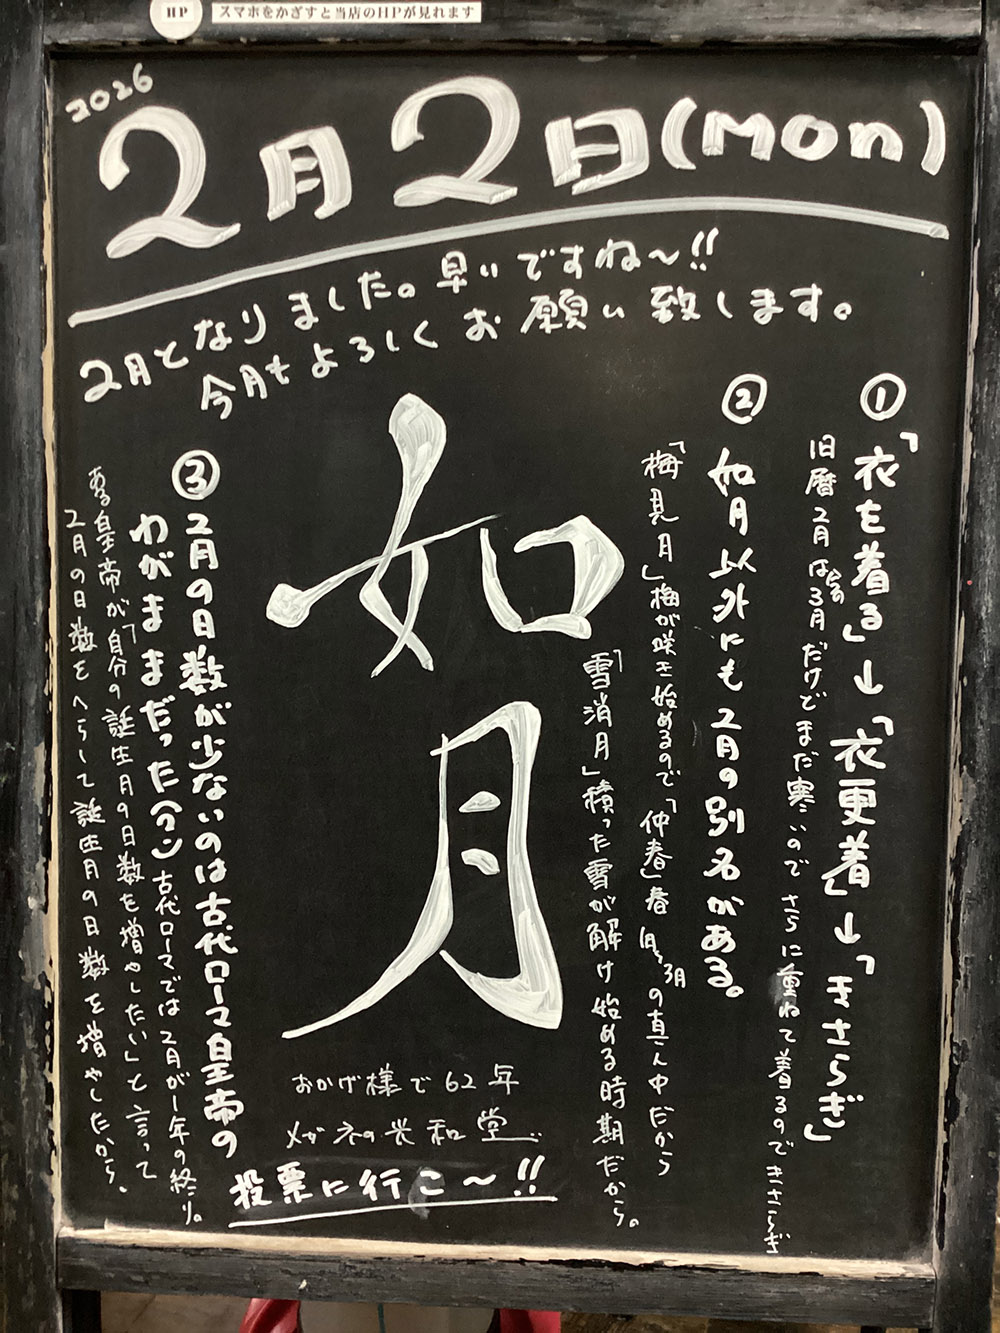 HP
スマホをかざすと当店のHPが見れます
2026
2月2日(Mon)
2月となりました。早いですね〜!!
今月もよろしくお願い致します。
①
「衣を着る」→「衣更着」→「きさらぎ」
旧暦2月は3月だけどまだ寒いのでさらに重ねて着るのできさらぎ
②
如月以外にも2月の別名がある。
「梅見月」梅が咲き始めるので「仲春」春(1月〜3月)の真ん中だから
「雪消月」積った雪が解け始める時期だから。
如月
③
2月の日数が少ないのは古代ローマ皇帝の
わがままだった(?)古代ローマでは2月が1年の終り。
ある皇帝が「自分の誕生月の日数を増やしたい」と言って
2月の日数をへらして誕生月の日数を増やしたから。
おかげ様で62年
メガネの光和堂
投票に行こ〜!!